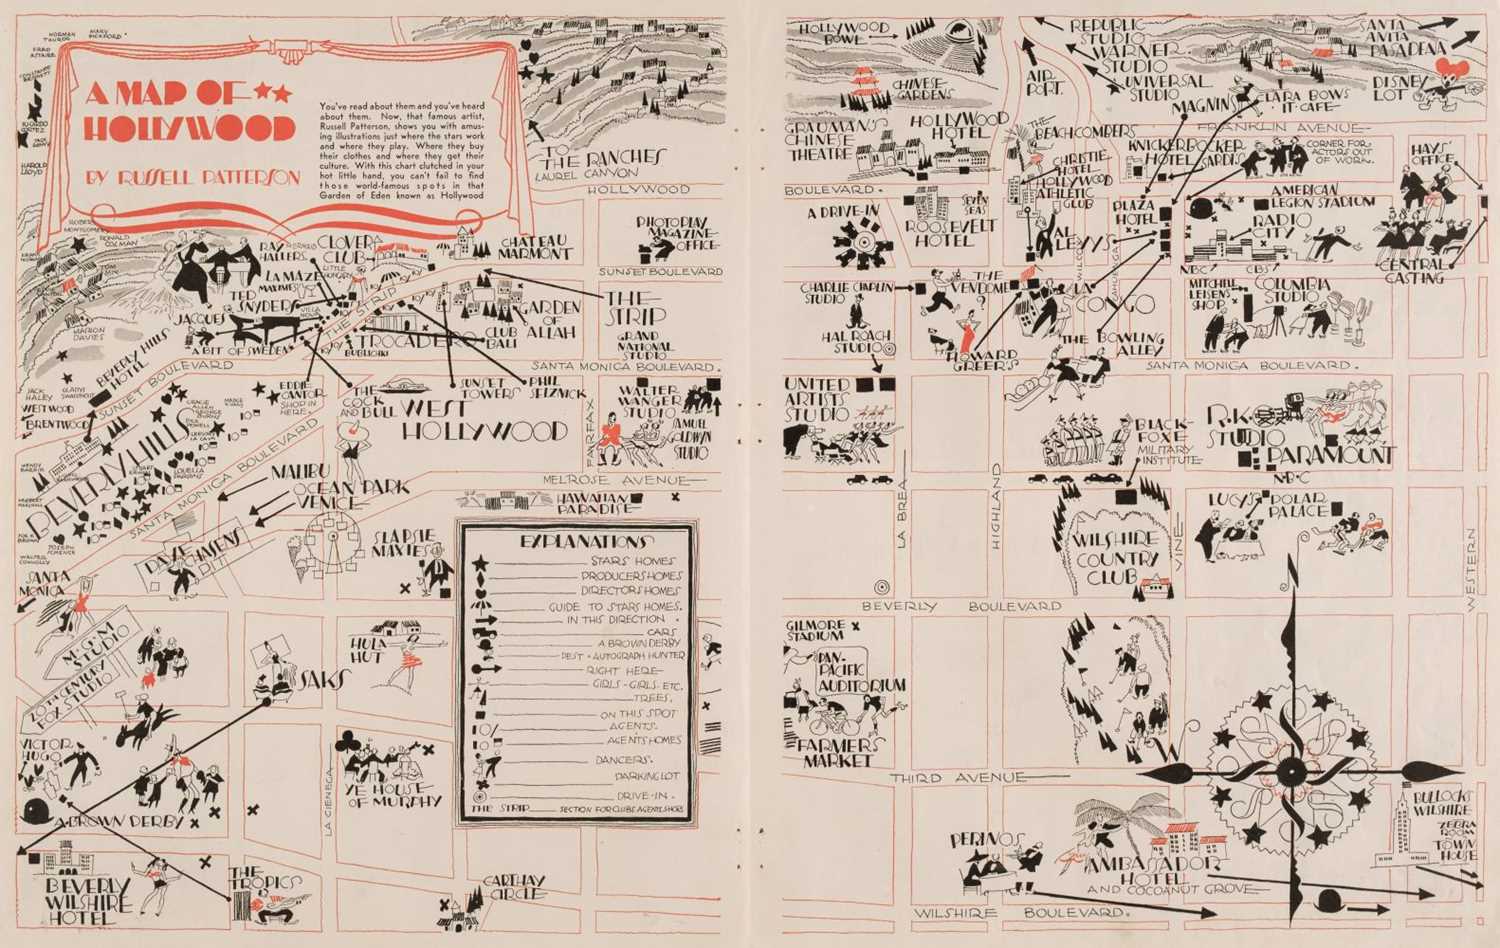 A MAP OF
HOLLYWOOD
BY RUSSELL PATTERSON
You've read about them and you've heard
about them. Now, that famous artist,
Russell Patterson, shows you with amus-
ing illustrations just where the stars work
and where they play. Where they buy
their clothes and where they get their
culture. With this chart clutched in your
hot little hand, you can't fail to find
those world-famous spots in that
Garden of Eden known as Hollywood
NORMAN
TAUROG
MARY
PICKFORD
FRED
ASTAIRE
CONSTANCE
BENNETT
RICARDO
CORTEZ
JACK
HAROLD
LLOYD
ROBERT
MONTGOMERY
RONALD
COLMAN
MARION
DAVIES
TO
THE RANCHES
LAUREL CANYON
HOLLYWOOD
PHOTOPLAY
MAGAZINE
OFFICE
SUNSET BOULEVARD
RAY
HALLERS
CLOVER
CLUB
LITTLE
HUNGARY
LA MAZE
MAXIMES
CHATEAU
MARMONT
TED
SNYDERS
VILLA
THE STRIP
JACQUES
A BIT OF SWEDEN
TROCADERO
BUBLICHKI
GARDEN
OF
ALLAH
CLUB
BALI
THE
STRIP
GRAND
NATIONAL
STUDIO
SANTA MONICA BOULEVARD.
BEVERLY HILLS
HOTEL
SUNSET BOULEVARD
JACK
HALEY
GLADYS
SWARTHOUT
WESTWOOD
BRENTWOOD
GRACIE
ALLEN
GEORGE
BURNS
MADGE
EVANS
DICK
POWELL
EDDIE
CANTOR
SHOP IN
HERE.
THE
COCK
AND BULL
SUNSET
TOWERS
PHIL
SELZNICK
WEST
HOLLYWOOD
FAIRFAX
WALTER
WANGER
STUDIO
SAMUEL
GOLDWYN
STUDIO
WENDY
BARRIE
LOUELLA
PARSONS
BEVERLY HILLS
SANTA MONICA BOULEVARD
HERBERT
MARSHALL
JOE E.
BROWN
WALTER
CONNOLLY
MALIBU
OCEAN PARK
VENICE
MELROSE AVENUE
HAWAIIAN
PARADISE
DAVE
CHASENS
PIT
SLAPSIE
MAXIES
SANTA
MONICA
M·G·M
STUDIO
20TH CENTURY
FOX STUDIO
HULA
HUT
SAKS
VICTOR
HUGO
A BROWN DERBY
LA CIENEGA
YE HOUSE
OF MURPHY
BEVERLY
WILSHIRE
HOTEL
THE
TROPICS
CARTHAY
CIRCLE
EXPLANATIONS
STARS HOMES
PRODUCERS HOMES
DIRECTORS HOMES
GUIDE TO STARS HOMES.
IN THIS DIRECTION
CARS
A BROWN DERBY
PEST - AUTOGRAPH HUNTER
RIGHT HERE
GIRLS - GIRLS - ETC.
TREES.
ON THIS SPOT
10/ AGENTS.
10 AGENTS HOMES
DANCERS.
PARKING LOT
DRIVE-IN.
THE STRIP SECTION FOR CLUBS AGENTS SHOPS
HOLLYWOOD
BOWL
CHINESE
GARDENS
GRAUMAN'S
CHINESE
THEATRE
HOLLYWOOD
HOTEL
AIR
PORT.
REPUBLIC
STUDIO
WARNER
STUDIO
UNIVERSAL
STUDIO
SANTA
ANITA
PASADENA
DISNEY
LOT
MAGNINS
CLARA BOWS
'IT' CAFE
FRANKLIN AVENUE
THE
BEACHCOMBERS
CHRISTIE
HOTEL
HOLLYWOOD
ATHLETIC
CLUB
KNICKERBOCKER
HOTEL
SARDI'S
CORNER FOR
ACTORS OUT
OF WORK.
HAYS
OFFICE
BOULEVARD.
A DRIVE-IN
SEVEN
SEAS
ROOSEVELT
HOTEL
PLAZA
HOTEL
AL
LEVYS
AMERICAN
LEGION STADIUM
RADIO
CITY
NBC
CBS
CENTRAL
CASTING
CHARLIE CHAPLIN
STUDIO
THE
VENDOME
?
CONGO
MITCHELL
LEISENS
SHOP
COLUMBIA
STUDIO
HAL ROACH
STUDIO
HOWARD
GREER'S
THE BOWLING
ALLEY
SANTA MONICA BOULEVARD.
UNITED
ARTISTS
STUDIO
BLACK-
FOXE
MILITARY
INSTITUTE
R.K.O.
STUDIO
PARAMOUNT
N·B·C
LA BREA
HIGHLAND
VINE
WESTERN
LUCY'S
POLAR
PALACE
WILSHIRE
COUNTRY
CLUB
BEVERLY BOULEVARD
GILMORE
STADIUM
PAN-
PACIFIC
AUDITORIUM
FARMERS
MARKET
THIRD AVENUE
W
BULLOCKS
WILSHIRE
ZEBRA
ROOM
TOWN
HOUSE
PERINOS
AMBASSADOR
HOTEL
AND COCOANUT GROVE
WILSHIRE BOULEVARD.